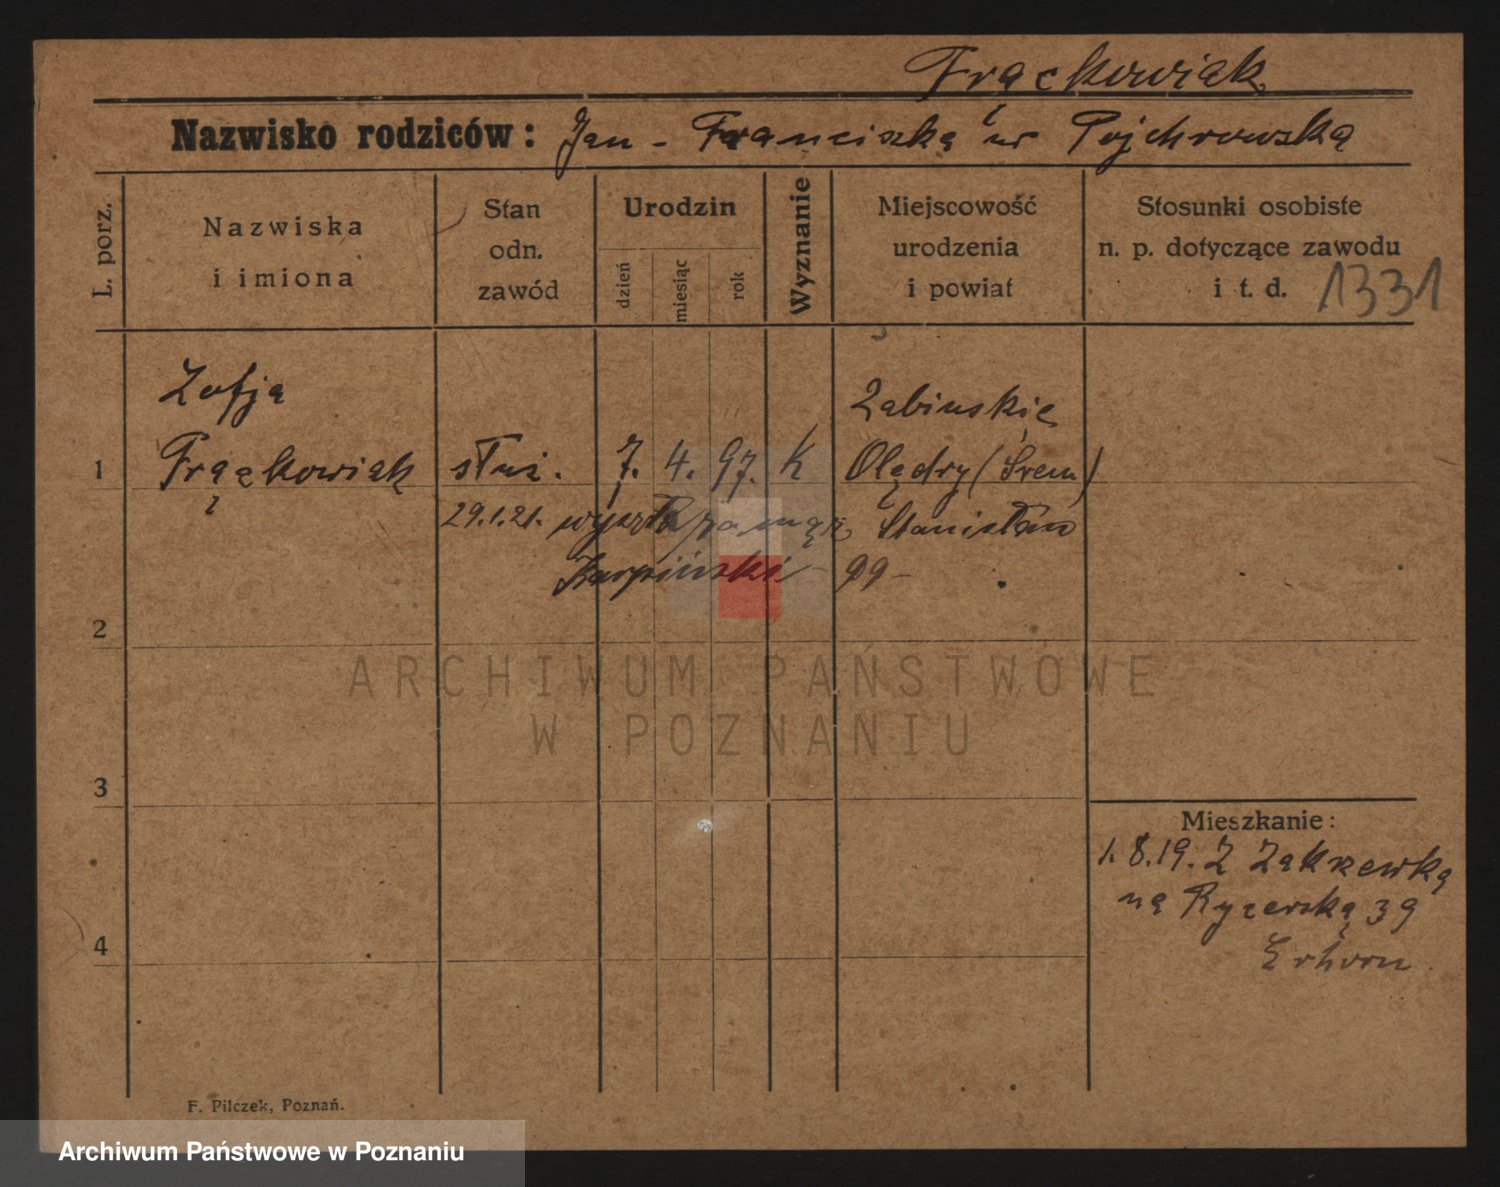 Frąckowiak
Nazwisko rodziców: Jan - Franciszka ur
L. porz.
Nazwiska
i imiona
Stan
odn.
zawód
Urodzin
dzień
miesiąc
rok
Wyznanie
Miejscowość
urodzenia
i powiat
Stosunki osobiste
n. p. dotyczące zawodu
i t. d. 1331
Zofja
1 Frąckowiak służ. 7. 4. 97. K
Żabińskie
Olędry (Śrem)
29.1.21. wyszła za mąż Stanisław
Karpiński 99 -
2
3
4
Mieszkanie:
1. 8. 19. Z Zakrzewka
na Rycerską 39
F. Pilczek, Poznań.
ARCHIWUM PAŃSTWOWE
W POZNANIU
Archiwum Państwowe w Poznaniu